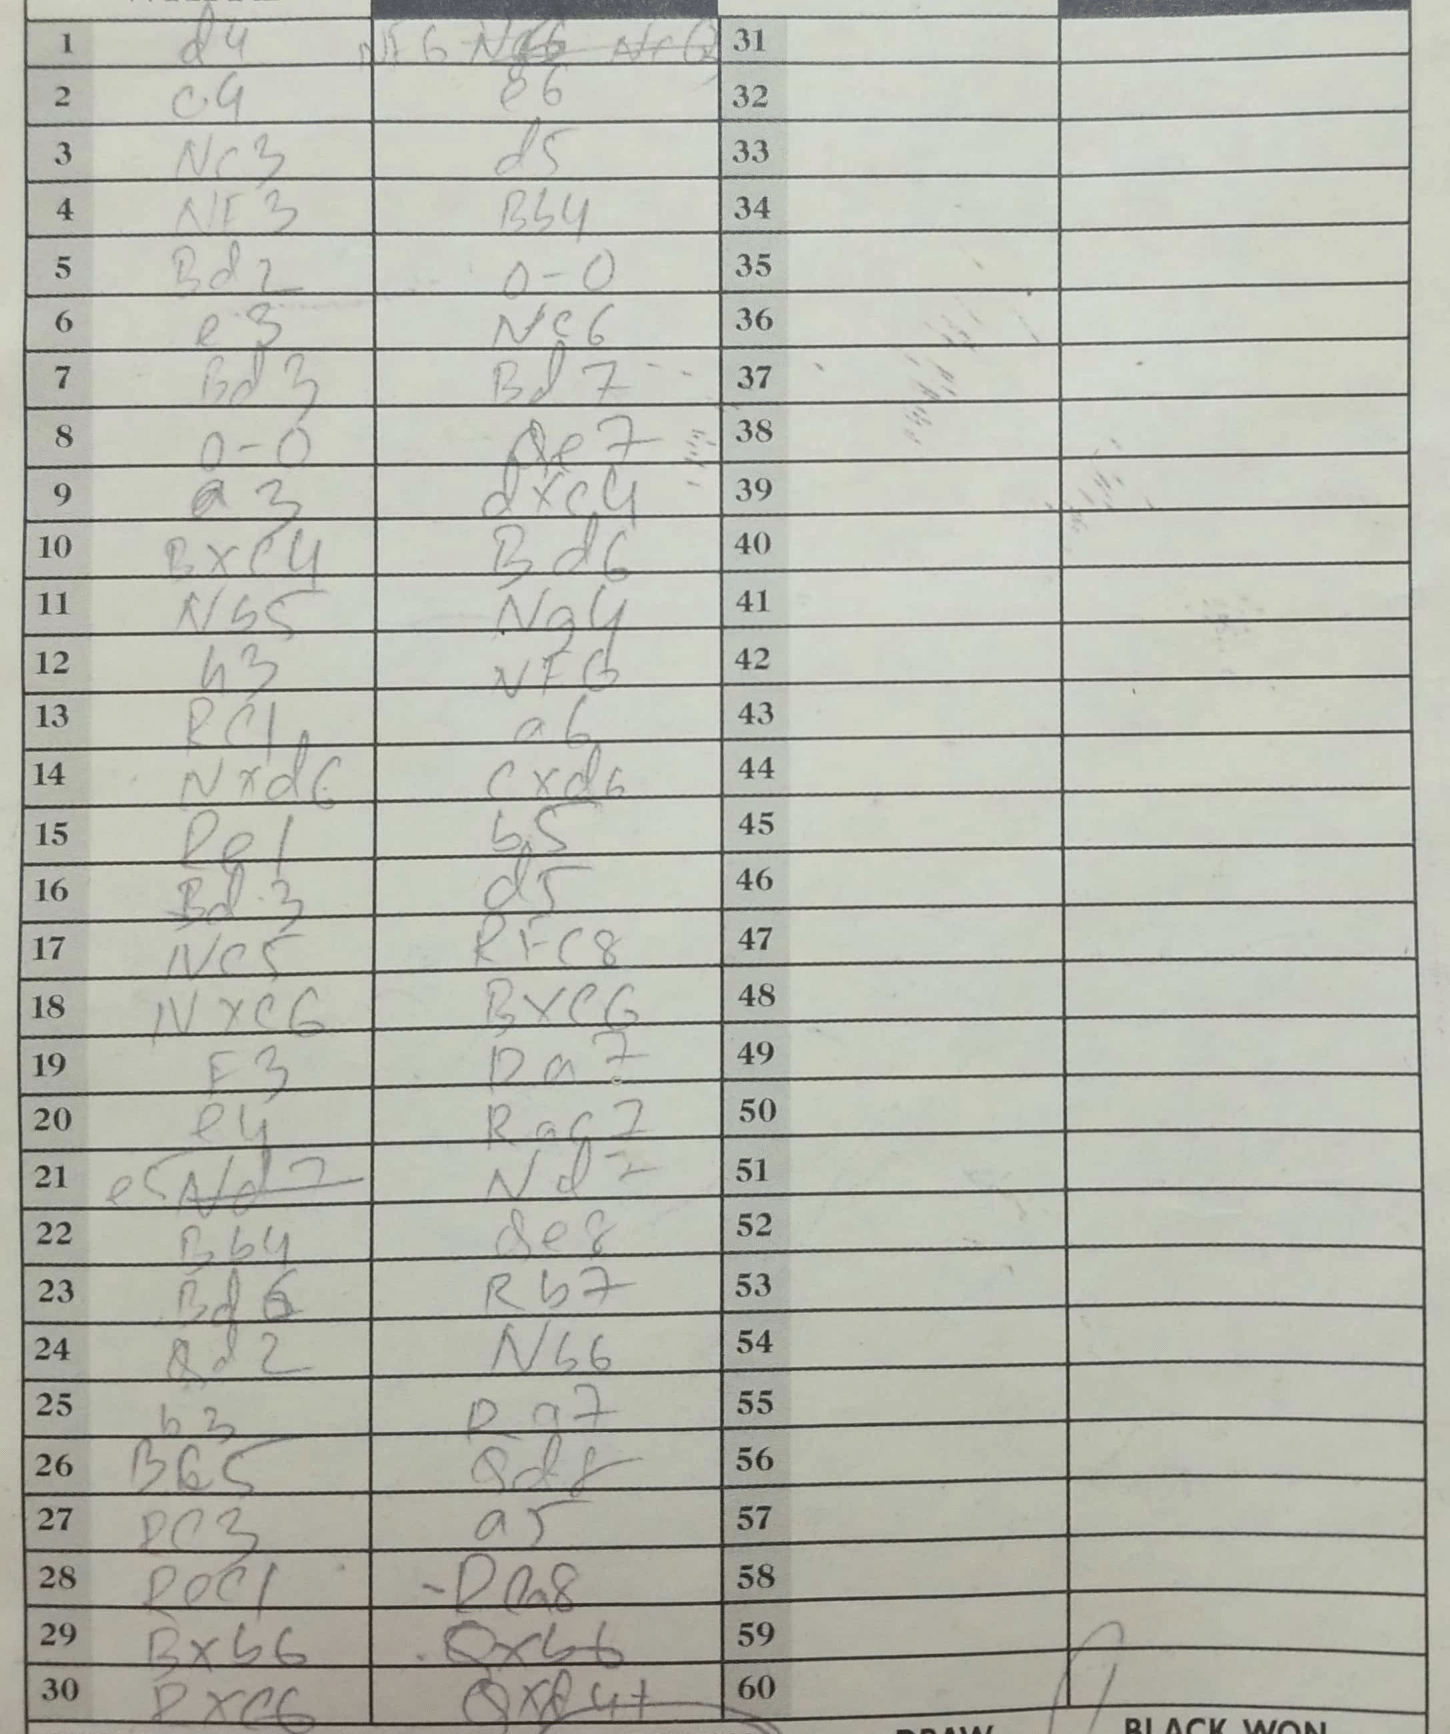 1 d4 Nf6 31
2 c4 e6 32
3 Nc3 d5 33
4 NF3 Bb4 34
5 Bd2 0-0 35
6 e3 Nc6 36
7 Bd3 Bd7 37
8 0-0 Qe7 38
9 a3 dxc4 39
10 Bxc4 Bd6 40
11 Nb5 Ng4 41
12 h3 NF6 42
13 RC1 a6 43
14 Nxd6 cxd6 44
15 Re1 b5 45
16 Bd3 d5 46
17 Ne5 RFC8 47
18 NXC6 BXC6 48
19 F3 Ra7 49
20 e4 Rac7 50
21 e5 Nd7 51
22 Bb4 Qe8 52
23 Bd6 Rb7 53
24 Qd2 Nb6 54
25 b3 Ra7 55
26 BC5 Qd8 56
27 RC3 a5 57
28 ReC1 -Raa8 58
29 Bxb6 Qxb6 59
30 RXC6 Qxd4+ 60
DRAW BLACK WON